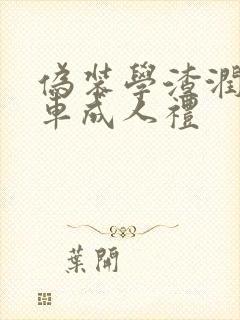 偽裝學渣潤
車成人禮
葉開